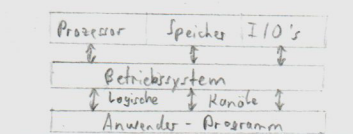 Prozessor Speicher I/O's
Betriebssystem
Logische Kanäle
Anwender-Programm